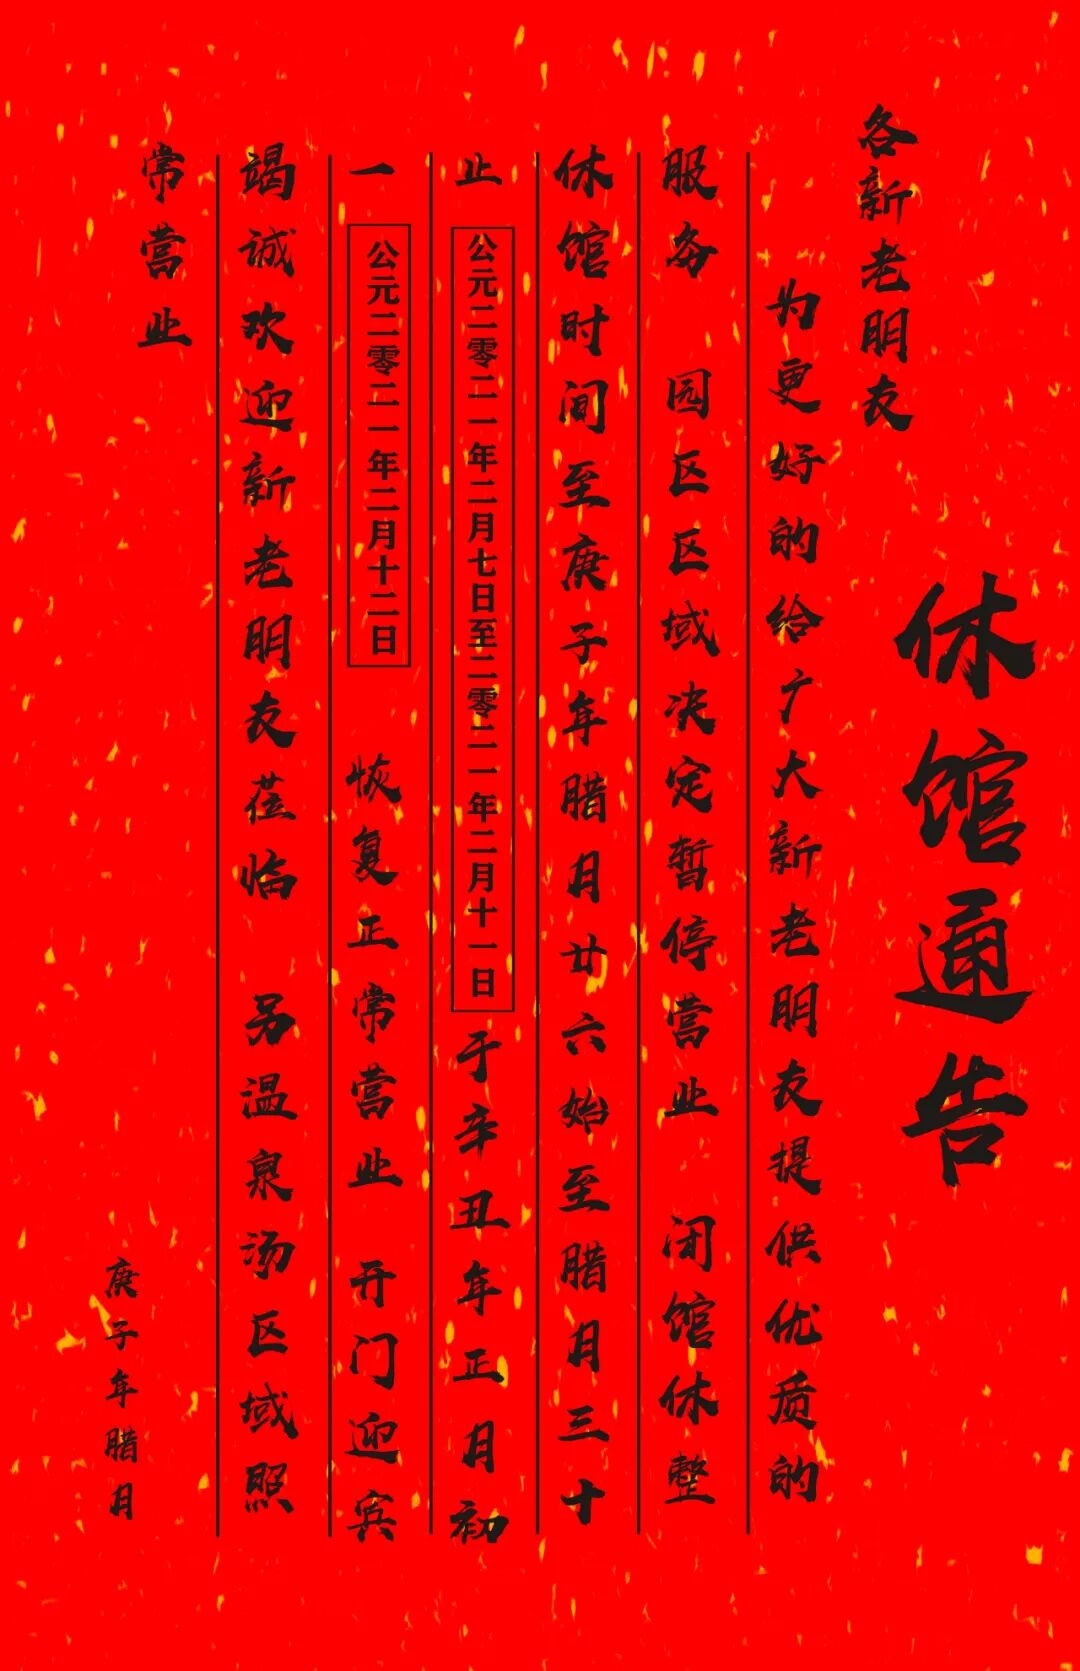 休馆通告
各新老朋友
为更好的给广大新老朋友提供优质的
服务 园区区域决定暂停营业 闭馆休整
休馆时间至庚子年腊月廿六始至腊月三十
止 公元二零二一年二月七日至二零二一年二月十一日 于辛丑年正月初
一 公元二零二一年二月十二日 恢复正常营业 开门迎宾
竭诚欢迎新老朋友莅临 另温泉汤区域照
常营业
庚子年腊月